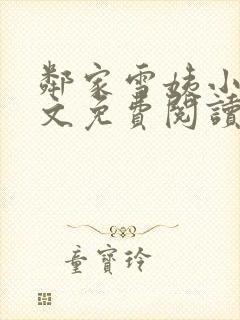 鄰家雪姨小
文免費閱讀
童寶玲